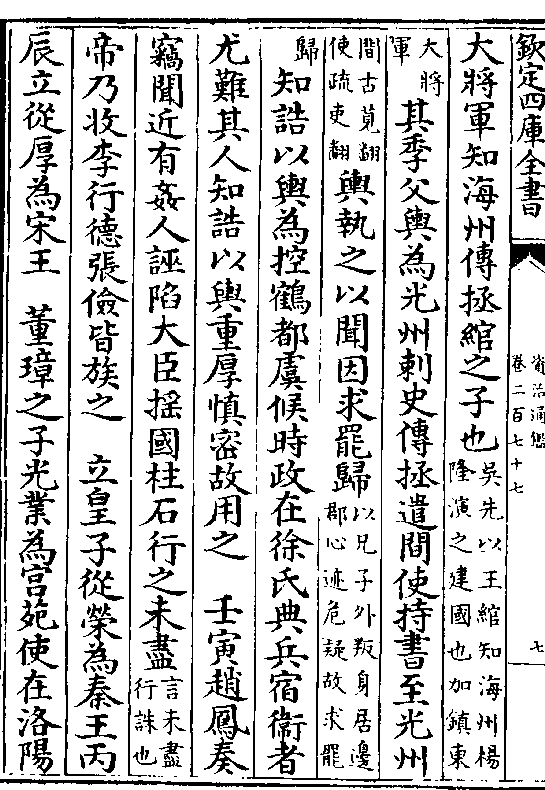 欽定四庫全書
資治通鑑
卷二百七十七
七
大將軍知海州傳拯綰之子也吳先以王綰知海州楊隆演之建國也加鎮東
大將軍其季父輿為光州刺史傳拯遣間使持書至光州
間古莧翻使疏吏翻輿執之以聞因求罷歸以兄子外叛身居邊郡心迹危疑故求罷
歸知誥以輿為控鶴都虞候時政在徐氏典兵宿衛者
尤難其人知誥以輿重厚慎密故用之 壬寅趙鳳奏
竊聞近有姦人誣陷大臣揺國柱石行之未盡言未盡行誅也
帝乃收李行德張儉皆族之 立皇子從榮為秦王丙
辰立從厚為宋王 董璋之子光業為宫苑使在洛陽